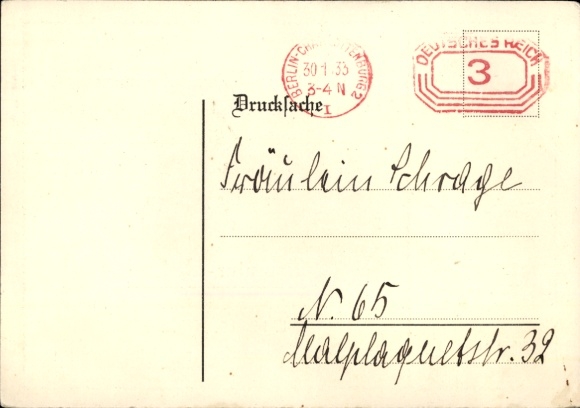 BERLIN-CHARLOTTENBURG 2
30.1.33
3-4 N
I
DEUTSCHES REICH
3
Drucksache
Fräulein Schrage
N. 65
Malplaquetstr. 32